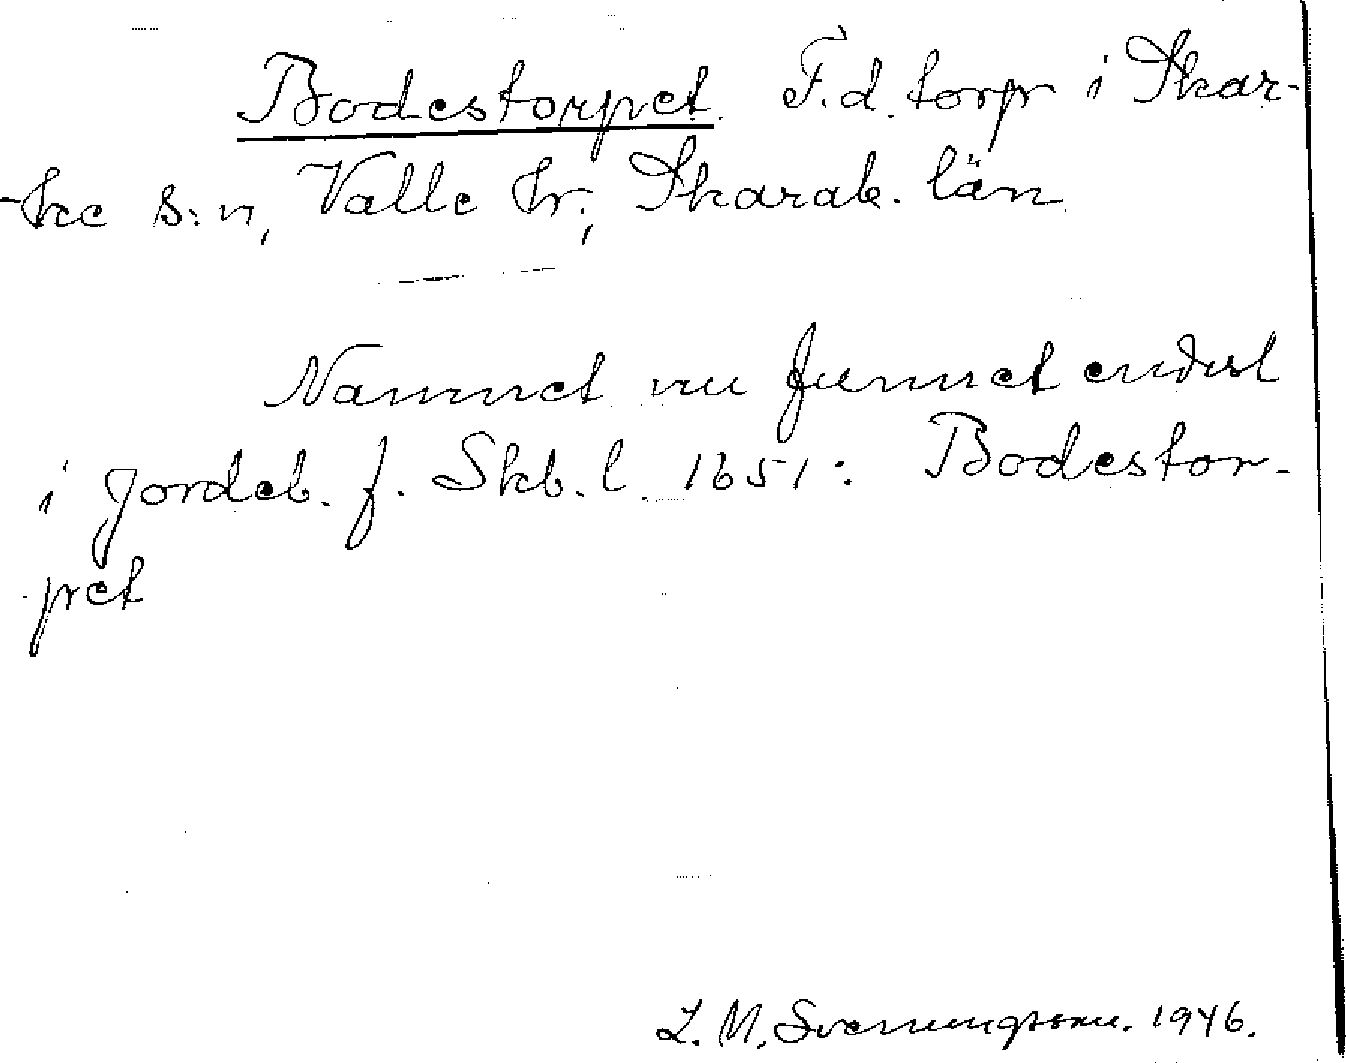 Bodestorpet. F.d. torp i Skar-
-ke s:n, Valle hr; Skarab. län
Namnet nu funnet endast
i Jordeb. f. Skb. l. 1651: Bodestor-
-pet
L. M. Svenungsson. 1946.